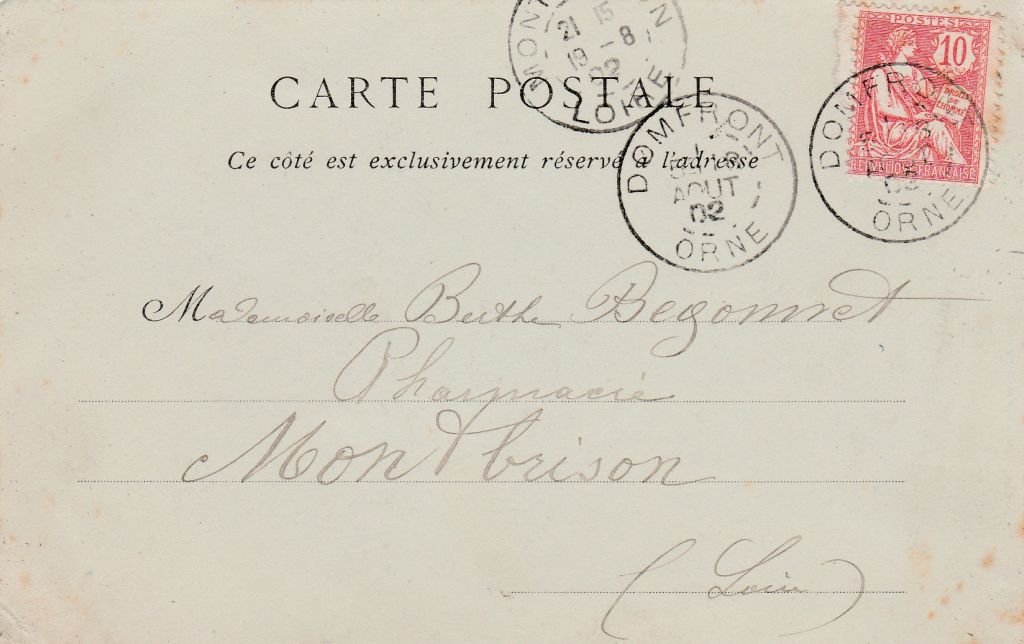 MONTBRISON
21 15
19 -8
02
LOIRE
POSTES
10
DROITS DE L'HOMME
REPUBLIQUE FRANÇAISE
CARTE POSTALE
Ce côté est exclusivement réservé à l'adresse
DOMFRONT
AOUT
02
ORNE
DOMFRONT
02
ORNE
Mademoiselle Berthe Begonnet
Pharmacie
Montbrison
(Loire)